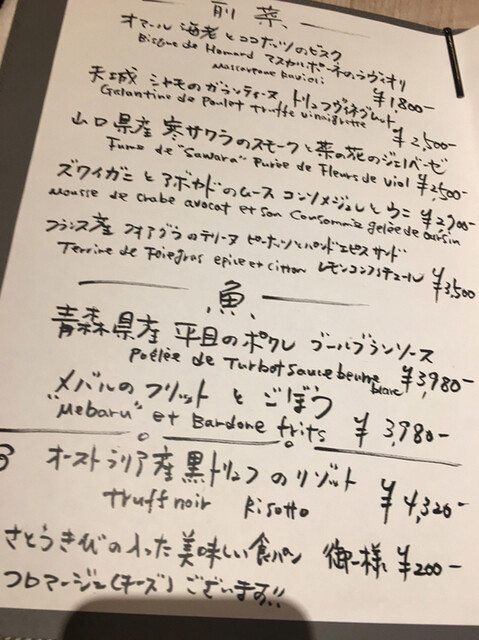 前菜
オマール海老とココナッツのビスク
Bisque de Homard マスカルポーネのラヴィオリ
Mascarpone Ravioli ¥1,800-
天城 シャモのガランティーヌ トリュフヴィネグレット
Galantine de Poulet truffe vinaigrette ¥2,500-
山口県産 寒サワラのスモークと菜の花のジェノベーゼ
Fume de "Sawara" Purée de Fleurs de viol ¥2,500-
ズワイガニとアボカドのムース コンソメジュレとウニ ¥2,900-
Mousse de crabe avocat et son Consommé gelée de oursin
フランス産 フォアグラのテリーヌ ピーナッツとパンドエピスサンド
Terrine de Foiegras epice et citron レモンコンフィチュール ¥3,500
魚
青森県産 平目のポワレ ブールブランソース
Poêlée de Turbot sauce beurre blanc ¥3,980-
メバルのフリットとごぼう
"Mebaru" et Bardone frits ¥3,980-
オーストラリア産黒トリュフのリゾット ¥4,320-
truff noir Risotto
さとうきびの入った美味しい食パン 御一様 ¥200-
フロマージュ(チーズ)ございます!!